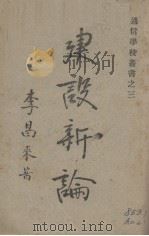 通信學校叢書之三
建設新論
李昌來著